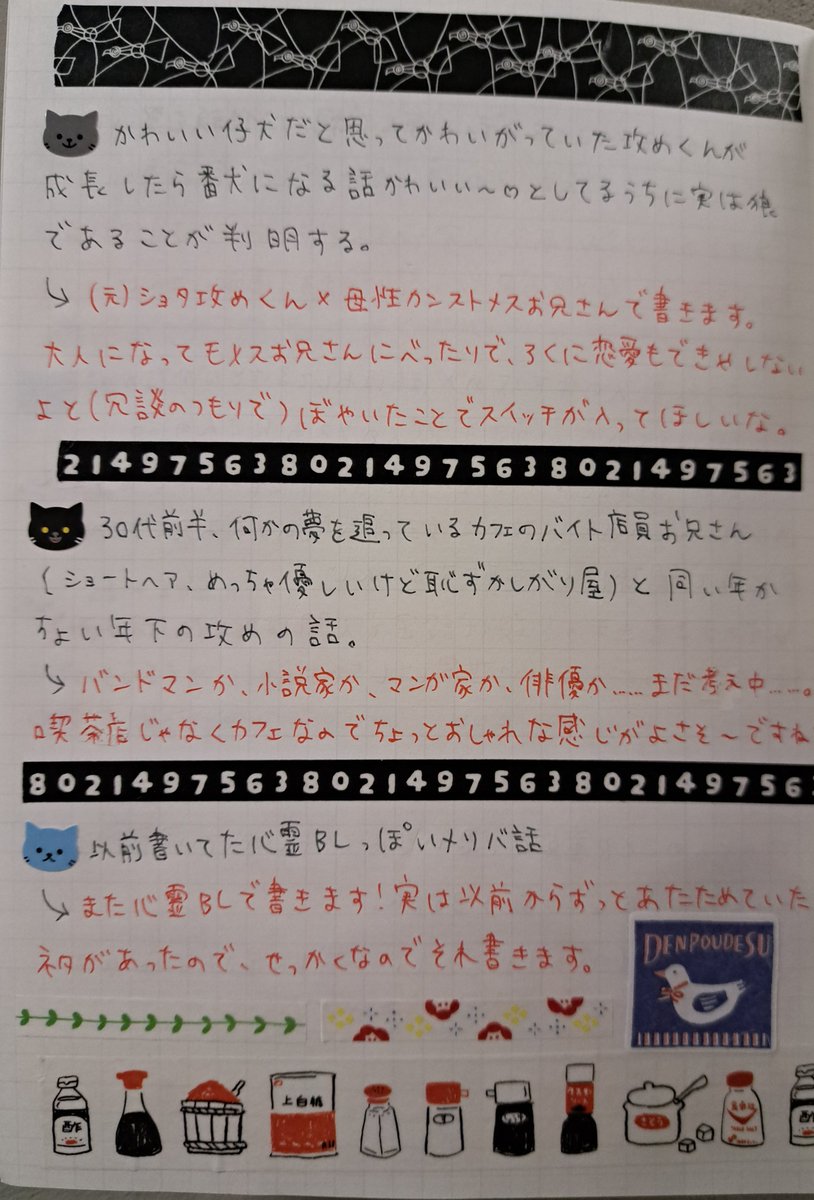 かわいい仔犬だと思ってかわいがっていた攻めくんが
成長したら番犬になる話かわいい〜♡としてるうちに実は狼
であることが判明する。
↳(元)ショタ攻めくん×母性カンストメスお兄さんで書きます。
大人になってモメスお兄さんにべったりで、ろくに恋愛もできやしない
よと(冗談のつもりで)ぼやいたことでスイッチが入ってほしいな。
2149756380214975638021497563
30代前半、何かの夢を追っているカフェのバイト店員お兄さん
(ショートヘア、めっちゃ優しいけど恥ずかしがり屋)と同い年か
ちょい年下の攻めの話。
↳バンドマンか、小説家か、マンガ家か、俳優か……まだ考え中……。
喫茶店じゃなくカフェなのでちょっとおしゃれな感じがよさそ〜ですね
80214975638021497563802149756
以前書いてた心霊BLっぽいメリバ話
↳また心霊BLで書きます!実は以前からずっとあたためていた
ネタがあったので、せっかくなのでそれ書きます。
DENPOUDESU
酢
上白糖
さとう
酢